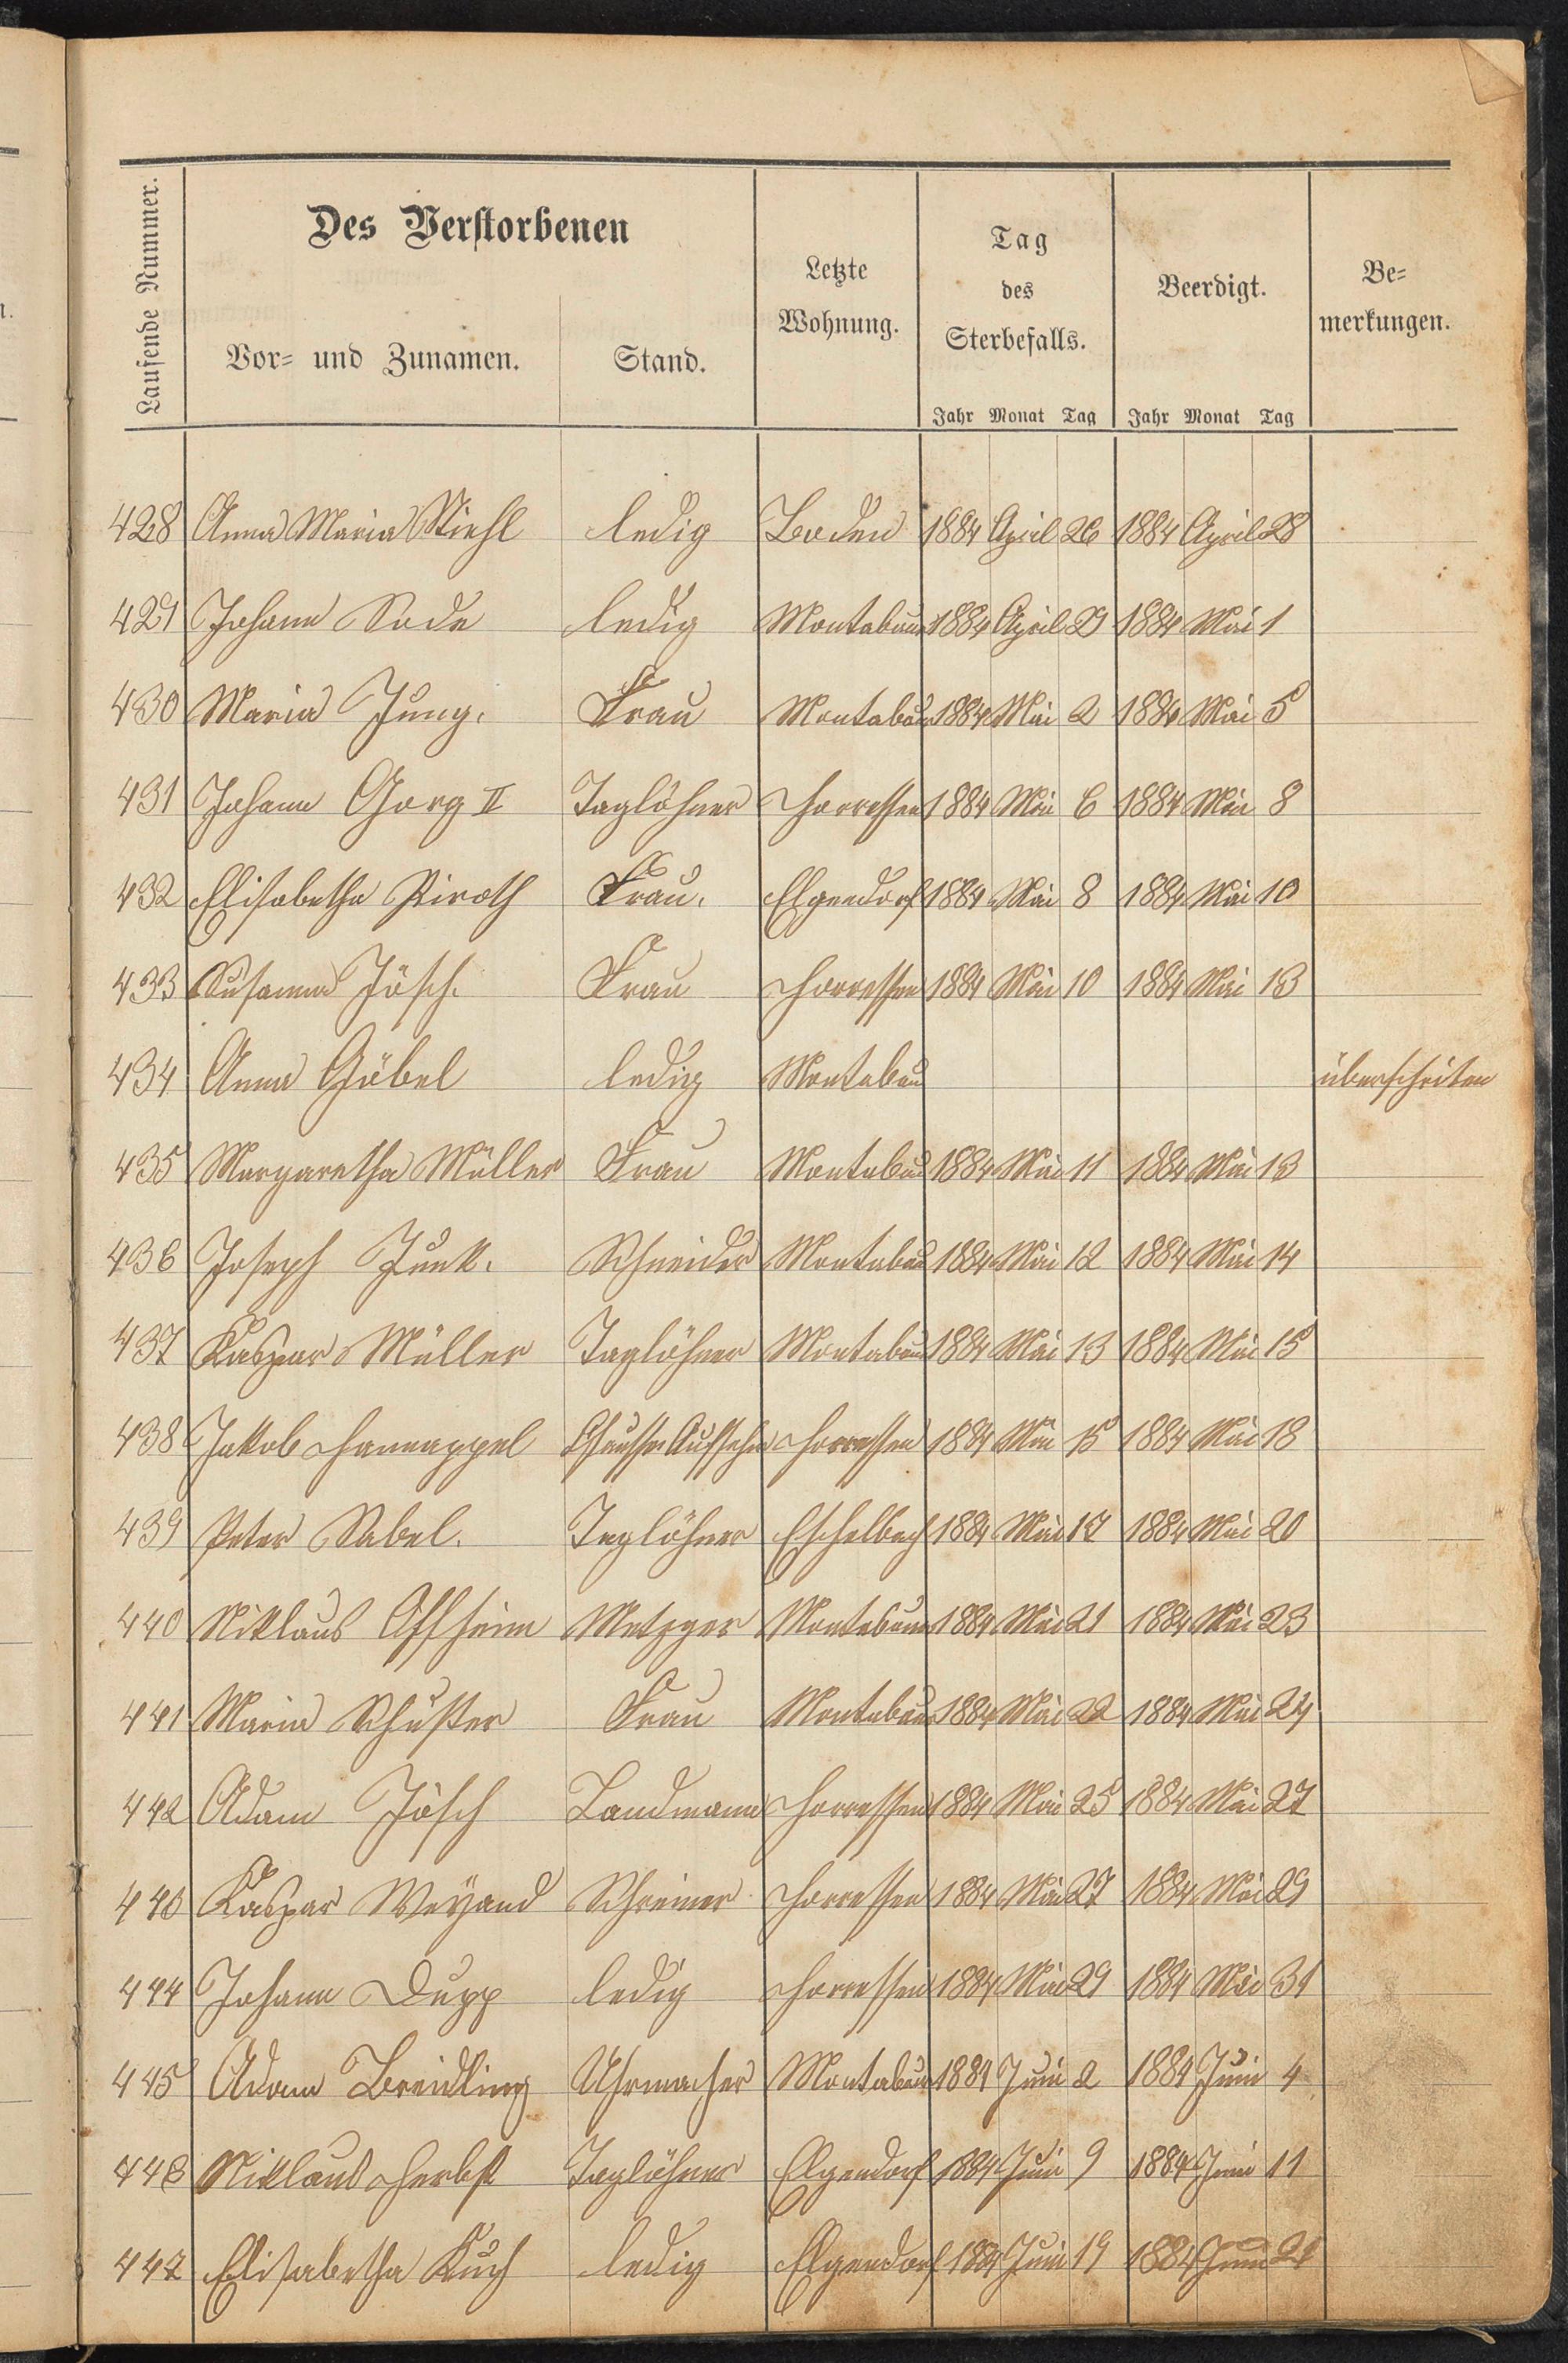 Laufende Nummer.
Des Verstorbenen
Vor- und Zunamen.
Stand.
Letzte
Wohnung.
Tag
des
Sterbefalls.
Beerdigt.
Be-
merkungen.
Jahr Monat Tag Jahr Monat Tag
428 Anna Maria Stiehl ledig Boden 1884 April 26 1884 April 28
429 Johann Sode ledig Montabaur 1884 April 29 1884 Mai 1
430 Maria Jung. Frau Montabaur 1884 Mai 2 1884 Mai 5
431 Johann Gorg II Taglöhner Horressen 1884 Mai 6 1884 Mai 8
432 Elisabetha Piroth Frau. Elgendorf 1884 Mai 8 1884 Mai 10
433 Susanna Jösch. Frau Horressen 1884 Mai 10 1884 Mai 13
434 Anna Göbel ledig Montabau überschriten
435 Margaretha Müller Frau Montabau 1884 Mai 11 1884 Mai 13
436 Joseph Junk. Schneider Montabau 1884 Mai 12 1884 Mai 14
437 Kaspar Müller Taglöhner Montabau 1884 Mai 13 1884 Mai 15
438 Jakob Hannappel Horressen 1884 Mai 15 1884 Mai 18
439 Peter Sabel. Taglöhner Eschelbach 1884 Mai 17 1884 Mai 20
440 Niklaus Metzger Montabaur 1884 Mai 21 1884 Mai 23
441 Maria Schuster Frau Montabaur 1884 Mai 22 1884 Mai 24
442 Adam Jösch Landmann Horressen 1884 Mai 25 1884 Mai 27
443 Kaspar Weyand Schreiner Horressen 1884 Mai 27 1884 Mai 29
444 Johann Dupp ledig Horressen 1884 Mai 29 1884 Mai 31
445 Adam Breidling Uhrmacher Montabaur 1884 Juni 2 1884 Juni 4
446 Niklaus Herbst Taglöhner Elgendorf 1884 Juni 9 1884 Juni 11
447 Elisabetha Kuch ledig Elgendorf 1884 Juni 19 1884 Juni 21